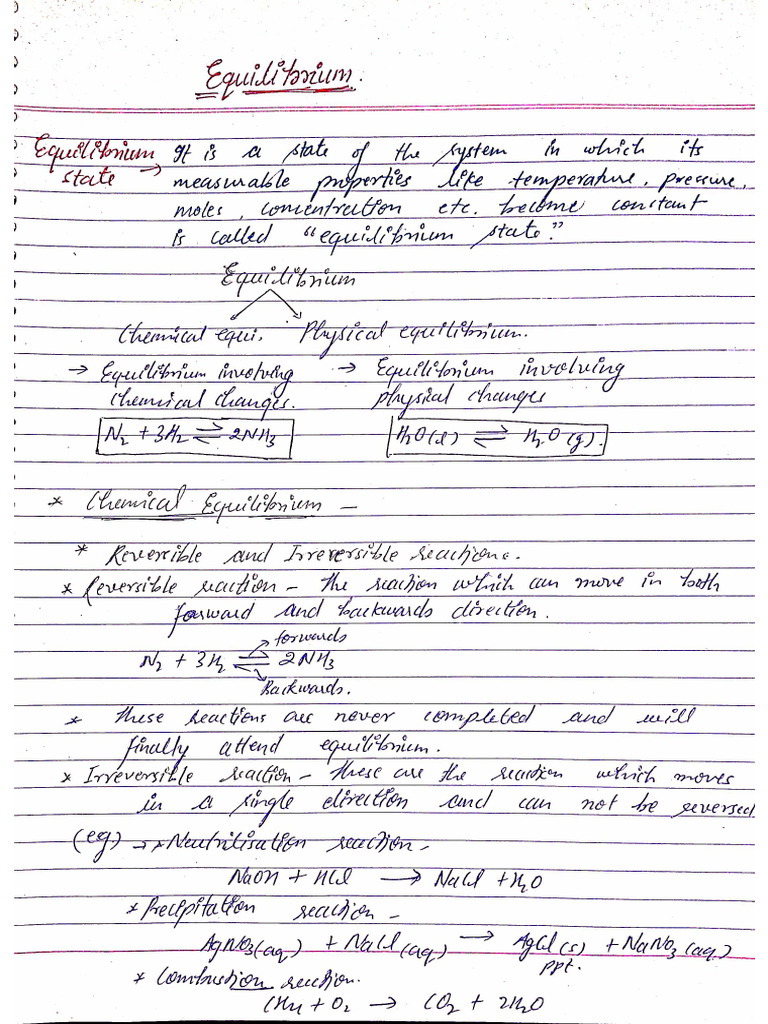 Equilibrium.
Equilibrium state → It is a state of the system in which its
measurable properties like temperature, pressure,
moles, concentration etc. become constant
is called "equilibrium state."
Equilibrium
Chemical equi. Physical equilibrium.
→ Equilibrium involving → Equilibrium involving
chemical changes. physical changes
N₂ + 3H₂ ⇌ 2NH₃ H₂O(l) ⇌ H₂O(g).
* Chemical Equilibrium —
* Reversible and Irreversible reactions.
* Reversible reaction - the reaction which can move in both
forward and backwards direction.
forwards
N₂ + 3H₂ ⇌ 2NH₃
Backwards.
* these reactions are never completed and will
finally attend equilibrium.
* Irreversible reaction - these are the reaction which moves
in a single direction and can not be reversed
(eg) → * Neutrilisation reaction -
NaOH + HCl → NaCl + H₂O
* Precipitation reaction -
AgNO₃(aq) + NaCl(aq) → AgCl(s) + NaNO₃(aq)
ppt.
* Combustion reaction.
CH₄ + O₂ → CO₂ + 2H₂O